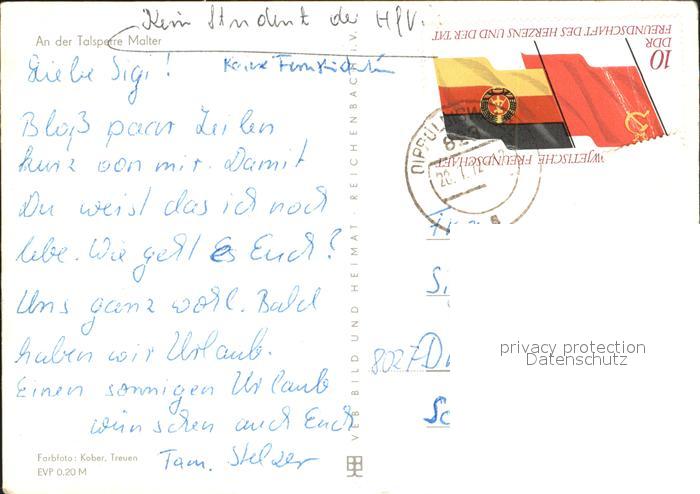 Kein Student der HfV.
An der Talsperre Malter
Liebe Sigi!
Keine Fernstudentin
Bloß paar Zeilen
kurz von mir. Damit
Du weist das ich noch
lebe. Wie geht es Euch?
Uns ganz wohl. Bald
haben wir Urlaub.
Einen sonnigen Urlaub
wünschen auch Euch
Fam. Stelzer
Farbfoto: Kober, Treuen
EVP 0.20 M
VEB BILD UND HEIMAT · REICHENBACH i. V.
10
DDR
FREUNDSCHAFT DES HERZENS UND DER TAT
WJETISCHE FREUNDSCHAFT
20.7.72
8027 Dr
privacy protection
Datenschutz